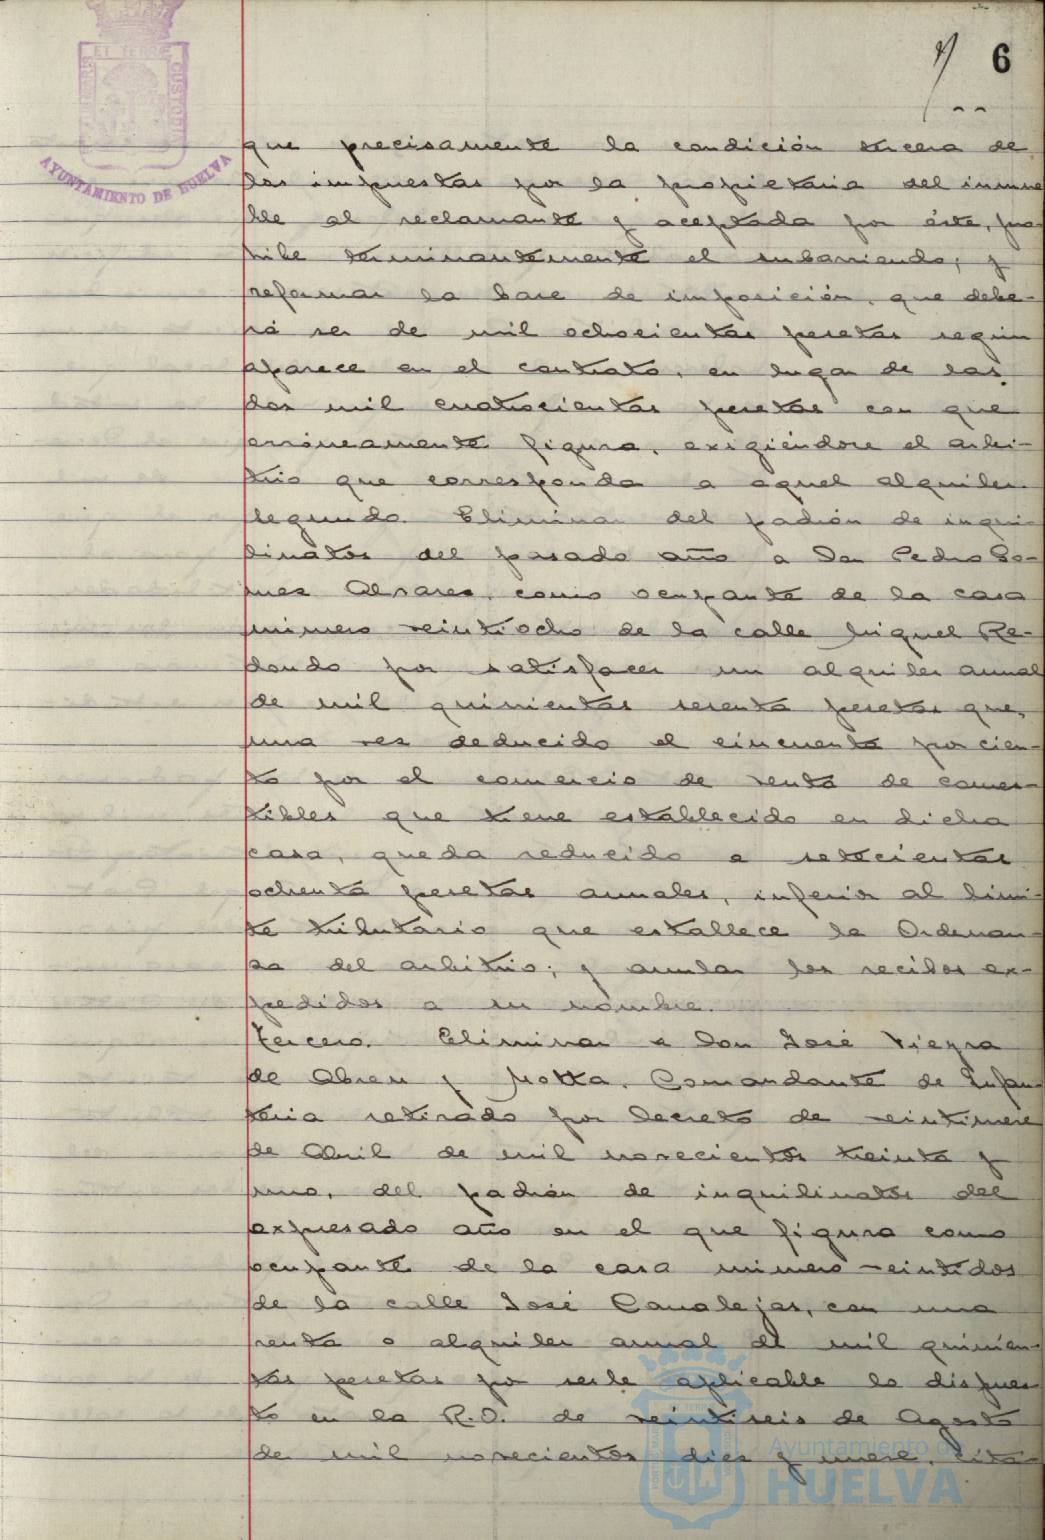 6
ET TERRE
CUSTODIA
AYUNTAMIENTO DE HUELVA
que precisamente la condición tercera de
las impuestas por la propietaria del inmue
ble al reclamante y aceptada por éste, pro-
hibe terminantemente el subarriendo; y
reformar la base de imposición, que debe-
rá ser de mil ochocientas pesetas según
aparece en el contrato, en lugar de las
dos mil cuatrocientas pesetas con que
erróneamente figura, exigiéndose el arbi-
trio que corresponda a aquel alquiler.
Segundo. Eliminar del padrón de inqui-
linatos del pasado año a Don Pedro Gó-
mez Alvarez, como ocupante de la casa
número veintiocho de la calle Miguel Re-
dondo por satisfacer un alquiler anual
de mil quinientas sesenta pesetas que,
una vez deducido el cincuenta por cien-
to por el comercio de venta de comes-
tibles que tiene establecido en dicha
casa, queda reducido a setecientas
ochenta pesetas anuales, inferior al lími-
te tributario que establece la Ordenan-
za del arbitrio; y anular los recibos ex-
pedidos a su nombre.
Tercero. Eliminar a Don José Vieyra
de Abreu y Motta, Comandante de Infan-
tería retirado por Decreto de veintinueve
de Abril de mil novecientos treinta y
uno, del padrón de inquilinatos del
expresado año en el que figura como
ocupante de la casa número veintidos
de la calle José Canalejas, con una
renta o alquiler anual de mil quinien-
tas pesetas por serle aplicable lo dispues
to en la R.O. de veintiseis de Agosto
de mil novecientos diez y nueve, cita-
Ayuntamiento de
HUELVA